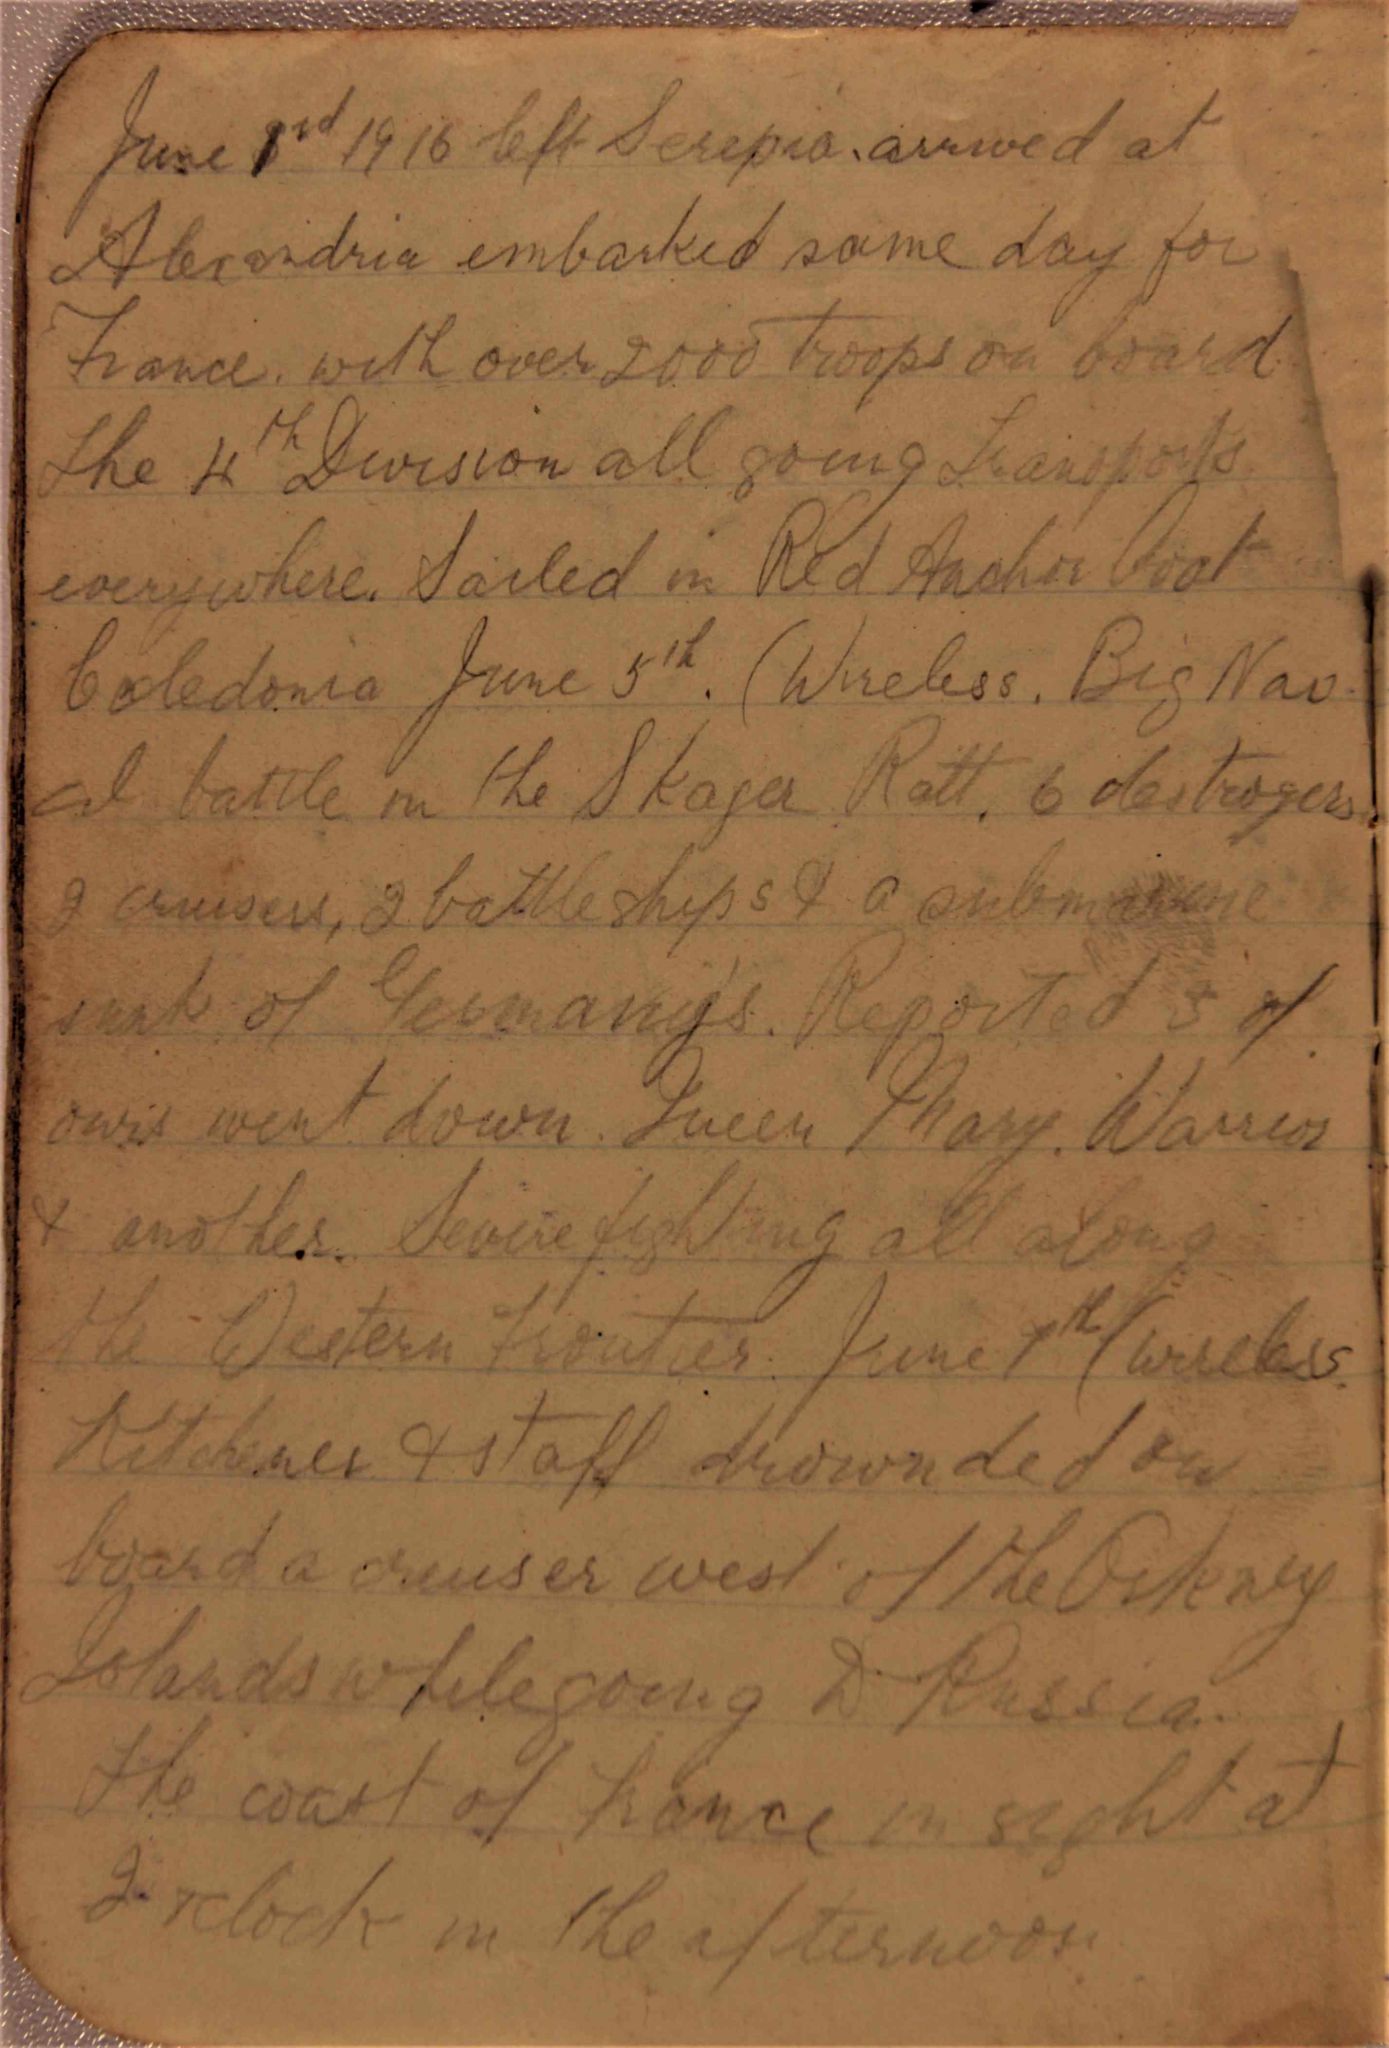 June 3rd 1916 left Serepia. arrived at
Alexandria embarked same day for
France. with over 2000 troops on board
the 4th Division all going Transports
everywhere. Sailed in Red Anchor boat
Caledonia June 5th. (Wireless. Big Nav
al battle in the Skager Ratt. 6 destroyers
2 cruisers, 2 battleships & a submarine
sunk of Germany's. Reported 3 of
ours went down. Queen Mary. Warrior
& another. Severe fighting all along
the Western Frontier. June 7th (wireless.
Kitchener & staff drownded on
board a cruiser west of the Orkney
Islands while going to Russia.
the coast of France in sight at
2 oclock in the afternoon